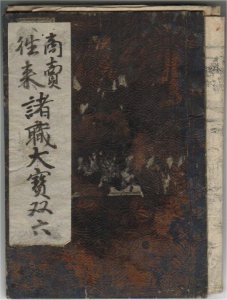 商賣
徃来
諸職大寳双六